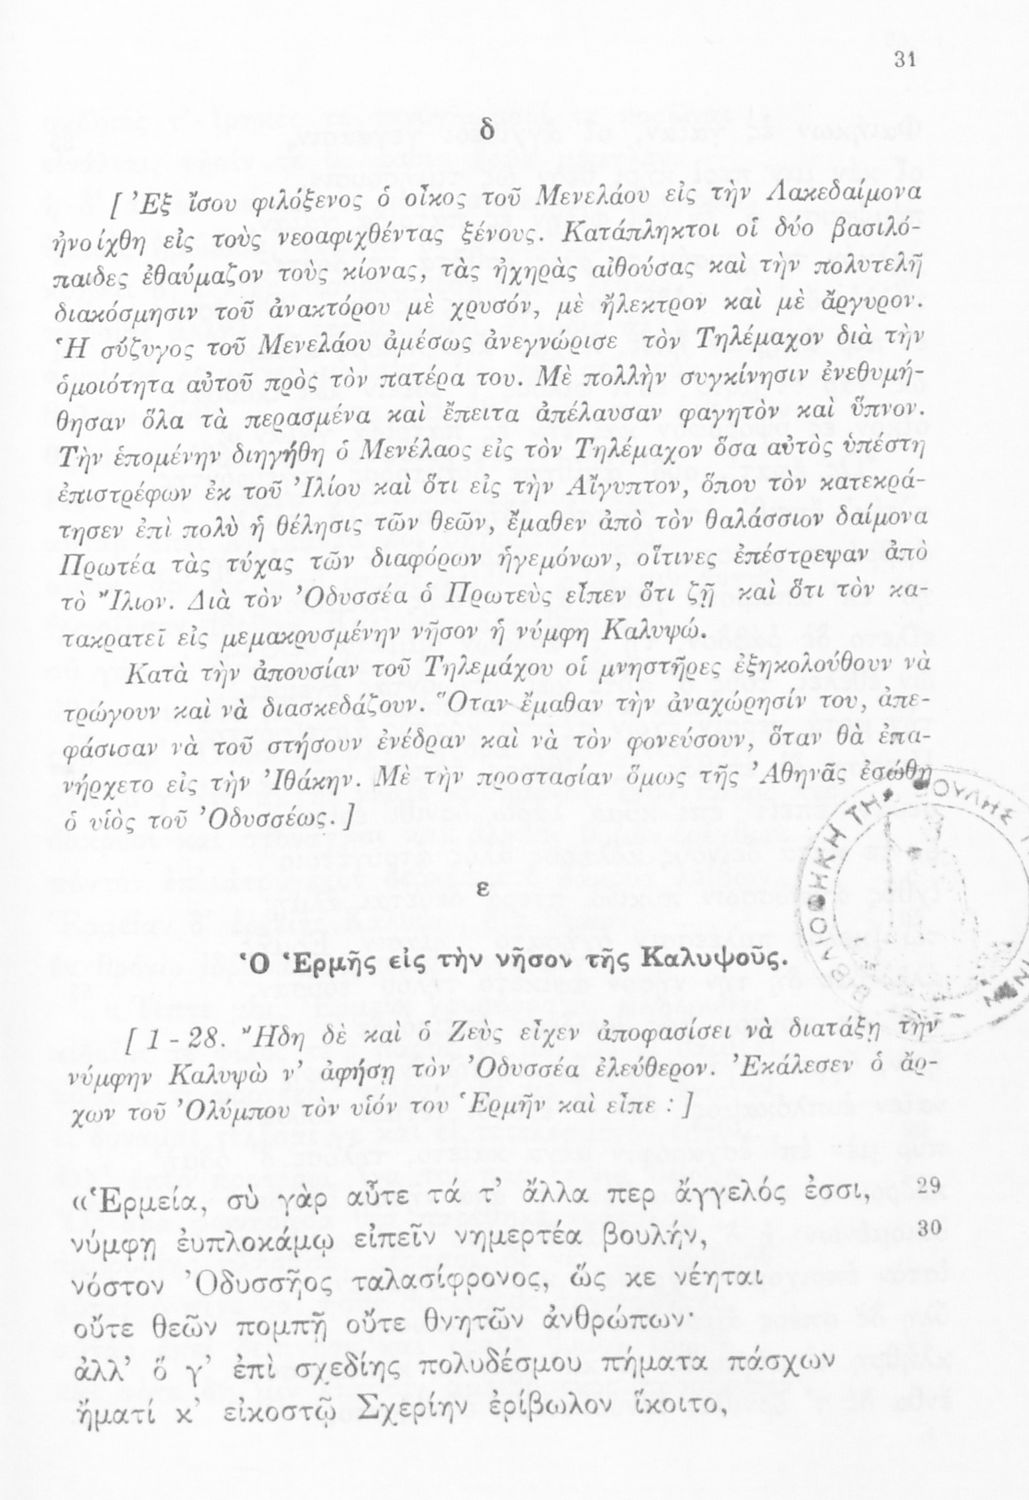 31
δ
[ Ἐξ ἴσου φιλόξενος ὁ οἶκος τοῦ Μενελάου εἰς τὴν Λακεδαίμονα
ἠνοίχθη εἰς τοὺς νεοαφιχθέντας ξένους. Κατάπληκτοι οἱ δύο βασιλό-
παιδες ἐθαύμαζον τοὺς κίονας, τὰς ἠχηρὰς αἰθούσας καὶ τὴν πολυτελῆ
διακόσμησιν τοῦ ἀνακτόρου μὲ χρυσόν, μὲ ἤλεκτρον καὶ μὲ ἄργυρον.
Ἡ σύζυγος τοῦ Μενελάου ἀμέσως ἀνεγνώρισε τὸν Τηλέμαχον διὰ τὴν
ὁμοιότητα αὐτοῦ πρὸς τὸν πατέρα του. Μὲ πολλὴν συγκίνησιν ἐνεθυμή-
θησαν ὅλα τὰ περασμένα καὶ ἔπειτα ἀπέλαυσαν φαγητὸν καὶ ὕπνον.
Τὴν ἑπομένην διηγήθη ὁ Μενέλαος εἰς τὸν Τηλέμαχον ὅσα αὐτὸς ὑπέστη
ἐπιστρέφων ἐκ τοῦ Ἰλίου καὶ ὅτι εἰς τὴν Αἴγυπτον, ὅπου τὸν κατεκρά-
τησεν ἐπὶ πολὺ ἡ θέλησις τῶν θεῶν, ἔμαθεν ἀπὸ τὸν θαλάσσιον δαίμονα
Πρωτέα τὰς τύχας τῶν διαφόρων ἡγεμόνων, οἵτινες ἐπέστρεψαν ἀπὸ
τὸ Ἴλιον. Διὰ τὸν Ὀδυσσέα ὁ Πρωτεὺς εἶπεν ὅτι ζῇ καὶ ὅτι τὸν κα-
τακρατεῖ εἰς μεμακρυσμένην νῆσον ἡ νύμφη Καλυψώ.
Κατὰ τὴν ἀπουσίαν τοῦ Τηλεμάχου οἱ μνηστῆρες ἐξηκολούθουν νὰ
τρώγουν καὶ νὰ διασκεδάζουν. Ὅταν ἔμαθαν τὴν ἀναχώρησίν του, ἀπε-
φάσισαν νὰ τοῦ στήσουν ἐνέδραν καὶ νὰ τὸν φονεύσουν, ὅταν θὰ ἐπα-
νήρχετο εἰς τὴν Ἰθάκην. Μὲ τὴν προστασίαν ὅμως τῆς Ἀθηνᾶς ἐσώθη
ὁ υἱὸς τοῦ Ὀδυσσέως. ]
ΒΙΒΛΙΟΘΗΚΗ ΤΗΣ ΒΟΥΛΗΣ
ε
Ὁ Ἑρμῆς εἰς τὴν νῆσον τῆς Καλυψοῦς.
[ 1 - 28. Ἤδη δὲ καὶ ὁ Ζεὺς εἶχεν ἀποφασίσει νὰ διατάξῃ τὴν
νύμφην Καλυψὼ ν’ ἀφήσῃ τὸν Ὀδυσσέα ἐλεύθερον. Ἐκάλεσεν ὁ ἄρ-
χων τοῦ Ὀλύμπου τὸν υἱόν του Ἑρμῆν καὶ εἶπε : ]
«Ἑρμεία, σὺ γὰρ αὖτε τά τ’ ἄλλα περ ἄγγελός ἐσσι, 29
νύμφῃ ἐυπλοκάμῳ εἰπεῖν νημερτέα βουλήν, 30
νόστον Ὀδυσσῆος ταλασίφρονος, ὥς κε νέηται
οὔτε θεῶν πομπῇ οὔτε θνητῶν ἀνθρώπων·
ἀλλ’ ὅ γ’ ἐπὶ σχεδίης πολυδέσμου πήματα πάσχων
ἤματί κ’ εἰκοστῷ Σχερίην ἐρίβωλον ἵκοιτο,